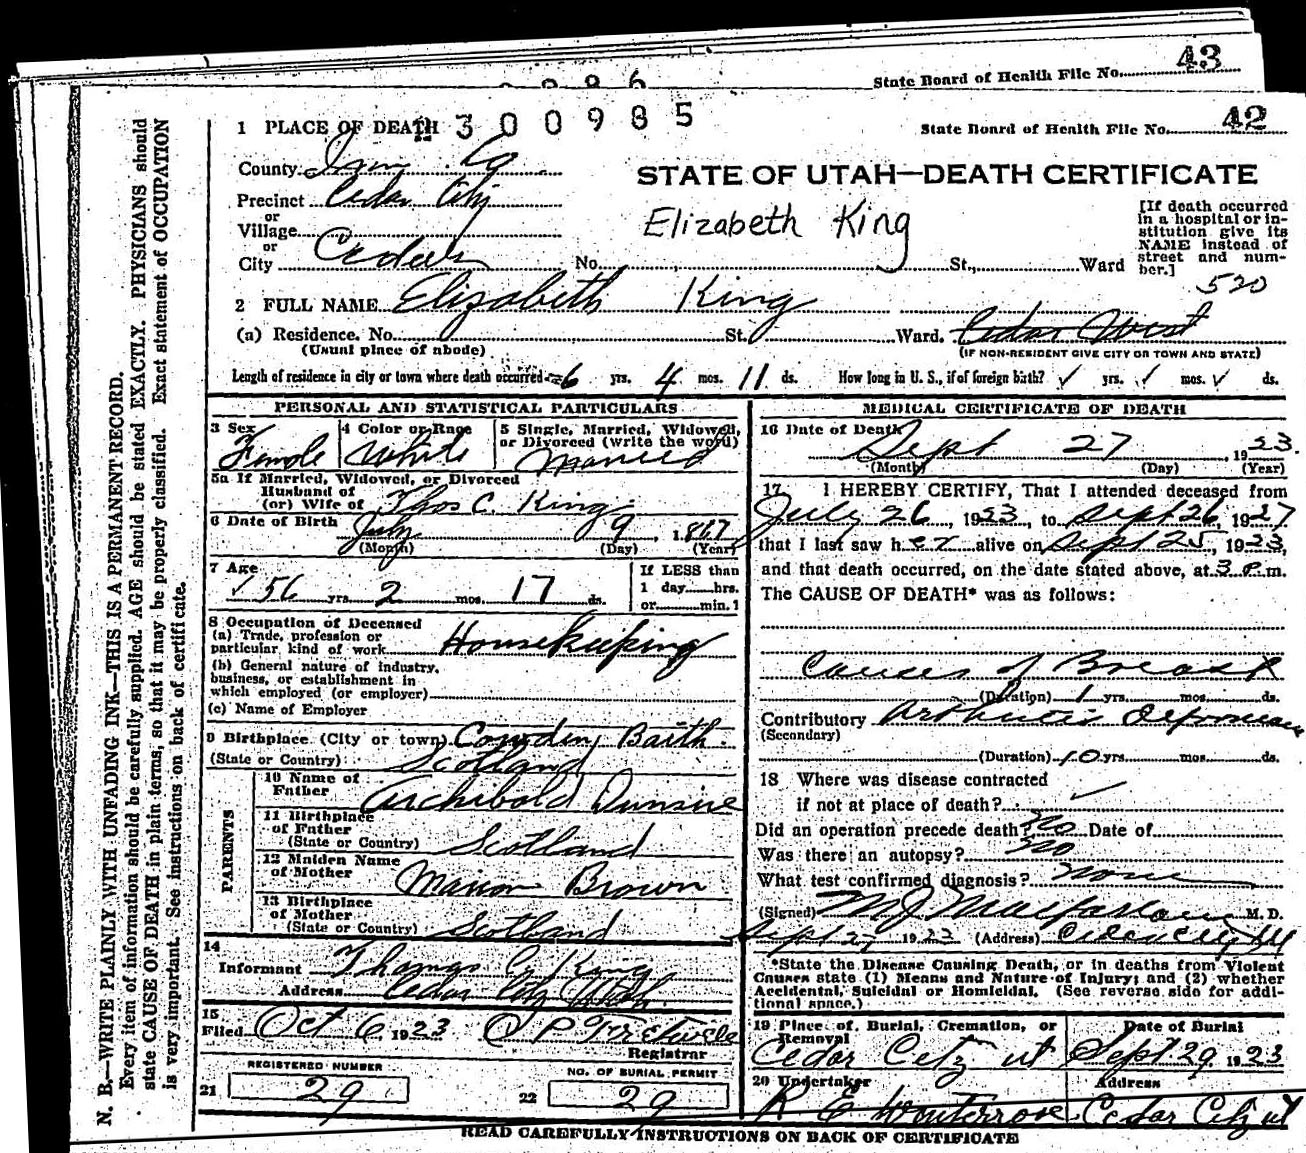 43
State Board of Health File No.
2300985
42
State Board of Health File No.
1 PLACE OF DEATH
County Iron Co
STATE OF UTAH—DEATH CERTIFICATE
Precinct Cedar City
or
Village
or
City Cedar No. St., Ward
Elizabeth King
[If death occurred
in a hospital or in-
stitution give its
NAME instead of
street and num-
ber.]
520
2 FULL NAME Elizabeth King
(a) Residence. No. St. Ward. Cedar West
(Usual place of abode)
(IF NON-RESIDENT GIVE CITY OR TOWN AND STATE)
Length of residence in city or town where death occurred 6 yrs. 4 mos. 11 ds. How long in U. S., if of foreign birth? ✓ yrs. ✓ mos. ✓ ds.
PERSONAL AND STATISTICAL PARTICULARS
3 Sex
Female
4 Color or Race
White
5 Single, Married, Widowed,
or Divorced (write the word)
Married
5a If Married, Widowed, or Divorced
Husband of
(or) Wife of Thos C. King
6 Date of Birth July 9, 1867
(Month) (Day) (Year)
7 Age
✓ 56 yrs. 2 mos. 17 ds.
If LESS than
1 day hrs.
or min.?
8 Occupation of Deceased
(a) Trade, profession or
particular kind of work Housekeeping
(b) General nature of industry,
business, or establishment in
which employed (or employer)
(c) Name of Employer
9 Birthplace (City or town) Cowden, Baith.
(State or Country) Scotland
PARENTS
10 Name of
Father Archibald Dunsire
11 Birthplace
of Father
(State or Country) Scotland
12 Maiden Name
of Mother Marion Brown
13 Birthplace
of Mother
(State or Country) Scotland
14
Informant Thomas C. King
Address Cedar City Utah
15
Filed Oct 6, 1923
Registrar
REGISTERED NUMBER
21 29
NO. OF BURIAL PERMIT
22 29
MEDICAL CERTIFICATE OF DEATH
16 Date of Death Sept 27, 1923.
(Month) (Day) (Year)
17 I HEREBY CERTIFY, That I attended deceased from
July 26, 1923, to Sept 26, 1927
that I last saw her alive on Sept 25, 1923,
and that death occurred, on the date stated above, at 3 P. m.
The CAUSE OF DEATH* was as follows:
of Breast
(Duration) 1 yrs. mos. ds.
Contributory
(Secondary)
(Duration) 10 yrs. mos. ds.
18 Where was disease contracted
if not at place of death? ✓
Did an operation precede death? no Date of
Was there an autopsy? no
What test confirmed diagnosis? none
(Signed) M J Macfarlane M. D.
Sept 27 1923 (Address) Cedar City Ut
*State the Disease Causing Death, or in deaths from Violent
Causes state (1) Means and Nature of Injury; and (2) whether
Accidental, Suicidal or Homicidal. (See reverse side for addi-
tional space.)
19 Place of Burial, Cremation, or
Removal
Cedar City ut
Date of Burial
Sept 29 1923
20 Undertaker
Address
Cedar City ut
READ CAREFULLY INSTRUCTIONS ON BACK OF CERTIFICATE
N. B.—WRITE PLAINLY WITH UNFADING INK—THIS IS A PERMANENT RECORD.
Every item of information should be carefully supplied. AGE should be stated EXACTLY. PHYSICIANS should
state CAUSE OF DEATH in plain terms, so that it may be properly classified. Exact statement of OCCUPATION
is very important. See instructions on back of certificate.